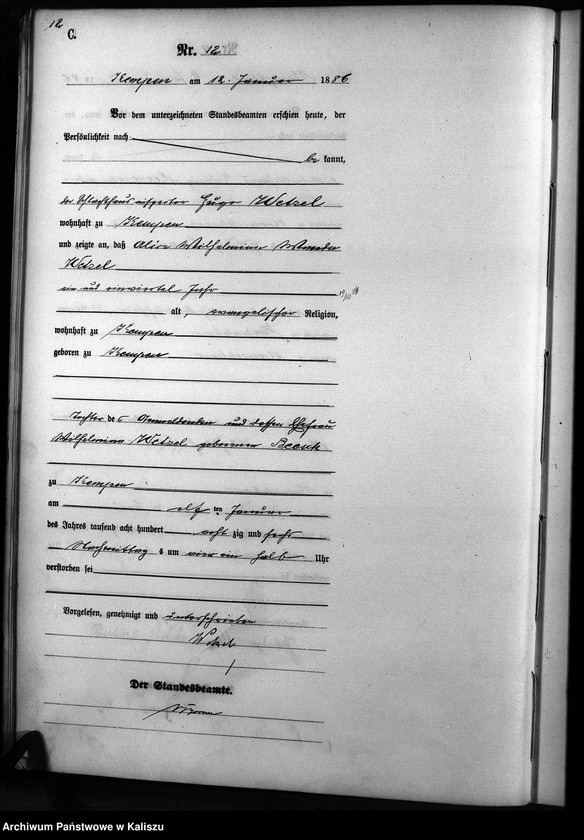 12
C.
Nr. 12
Kempen am 12. Januar 1886
Vor dem unterzeichneten Standesbeamten erschien heute, der
Persönlichkeit nach
be kannt,
der Schlachthausinspector Hugo Wetzel
wohnhaft zu Kempen
und zeigte an, daß Alice Wilhelmine Wanda
Wetzel
ein und einviertel Jahr
alt, evangelischer Religion,
wohnhaft zu Kempen
geboren zu Kempen
Tochter des Anmeldenden und dessen Ehefrau
Wilhelmine Wetzel geborenen
zu Kempen
am elf ten Januar
des Jahres tausend acht hundert acht zig und sechs
Nachmittag s um vier ein halb Uhr
verstorben sei
Vorgelesen, genehmigt und unterschrieben
Wetzel
Der Standesbeamte.
Archiwum Państwowe w Kaliszu